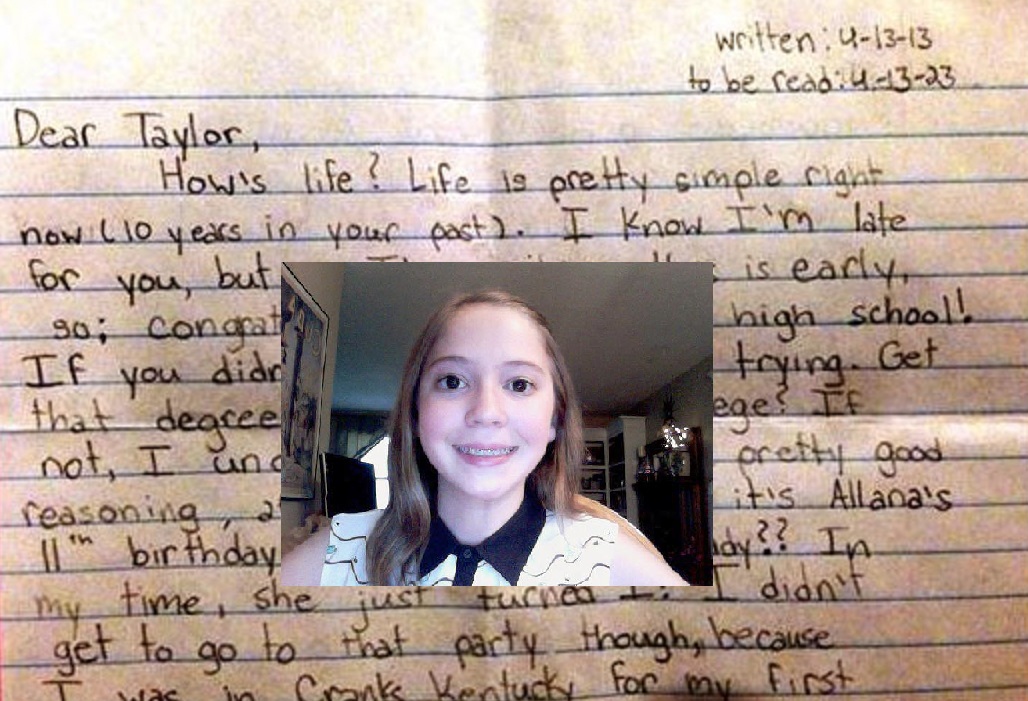 written: 4-13-13
to be read: 4-13-23
Dear Taylor,
How's life? Life is pretty simple right
now (10 years in your past). I know I'm late
for you, but is early,
so; congrat high school!
If you didn trying. Get
that degree ege? If
not, I und pretty good
reasoning, it's Allana's
11th birthday, ady?? In
my time, she just turned 1! I didn't
get to go to that party though, because
I was in Cranks Kentucky for my first